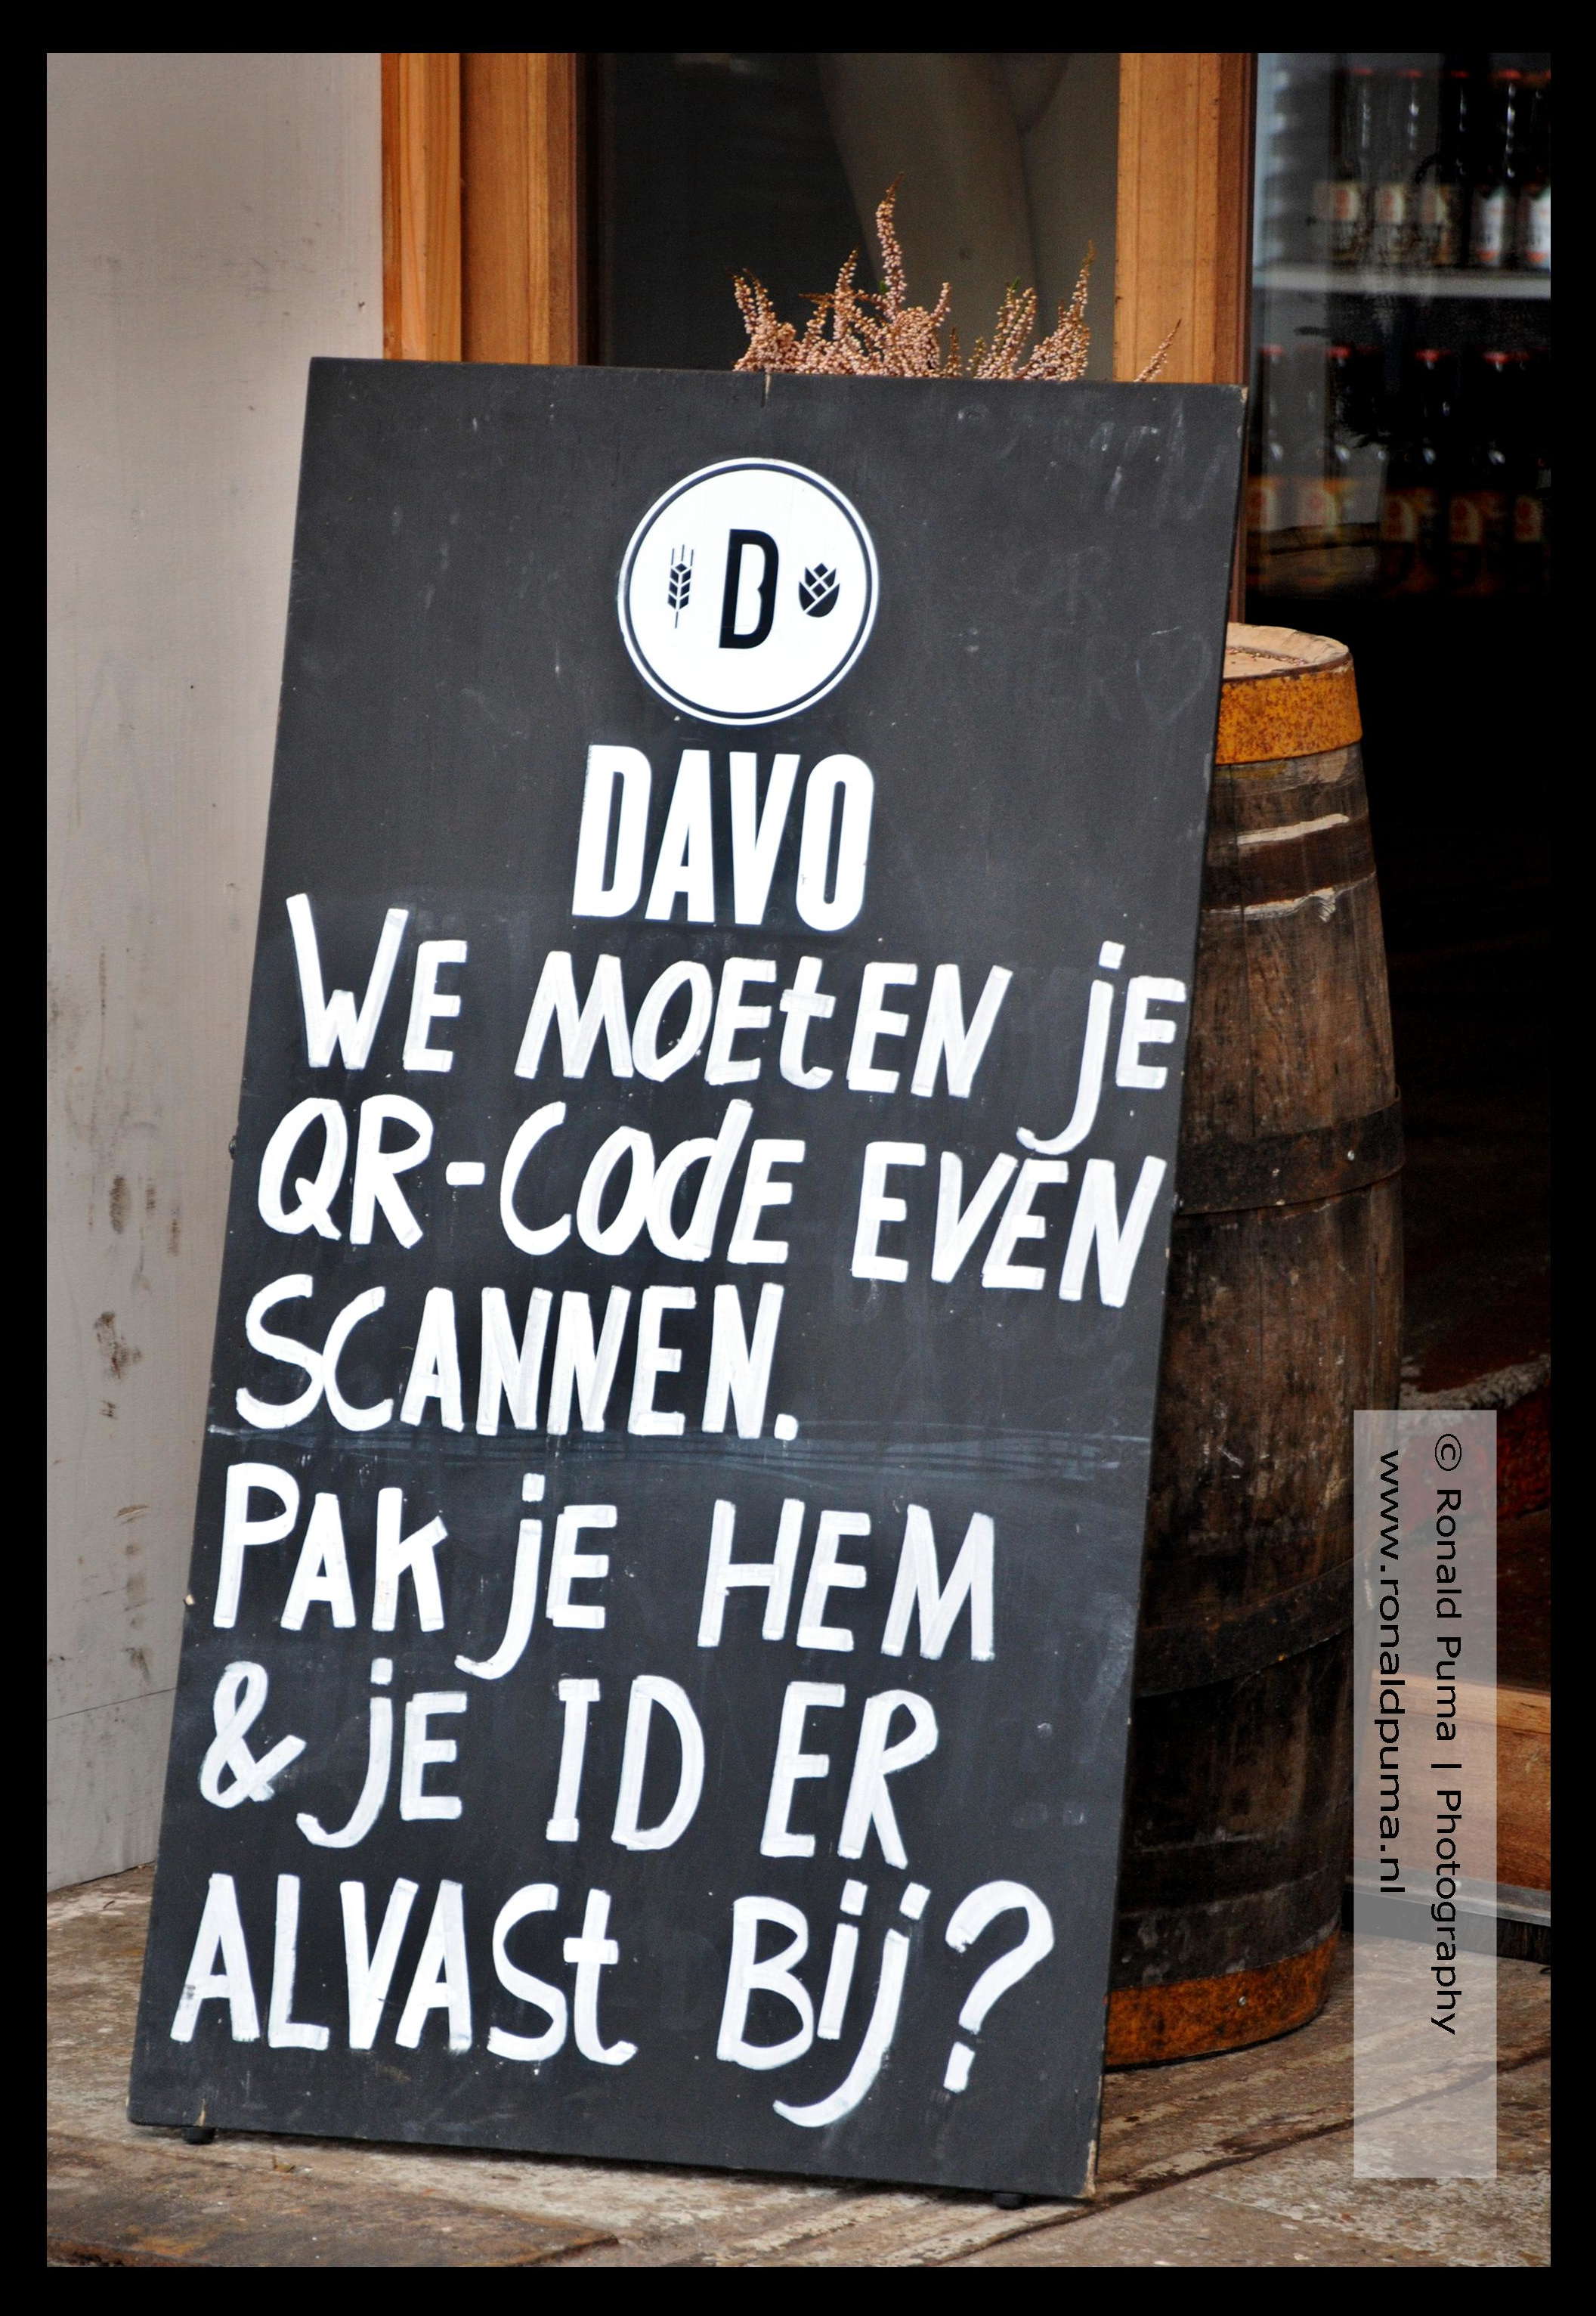 D
DAVO
WE MOEtEN jE
QR-COdE EVEN
SCANNEN.
PAk jE HEM
& jE ID ER
ALVASt Bij?
© Ronald Puma | Photography
www.ronaldpuma.nl